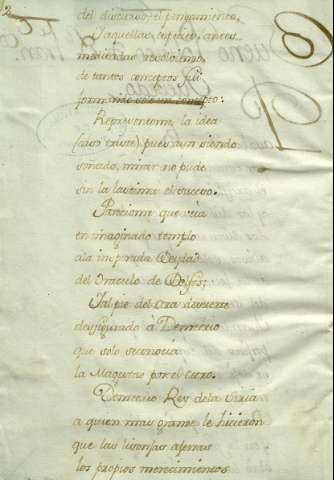 del discurso, el pensamiento,
Y aquellas especies, antes
meditadas revolviendo,
de tantos conceptos fui
formando solo un concepto:
Representome la idea
(caso triste) pues aun siendo
soñado, mirar no pude
sin lastima el suceso.
Pareciome que veia
en imaginado templo
a la inspirada Deydad
del Oraculo de Delfos;
Y al pie del Ara
desfigurado à Demetrio
que solo reconocia
la Magestad por el Cetro.
Demetrio Rey de la Siria
a quien mas grande le hicieron
que las lisonjas ajenas
los propios merecimientos